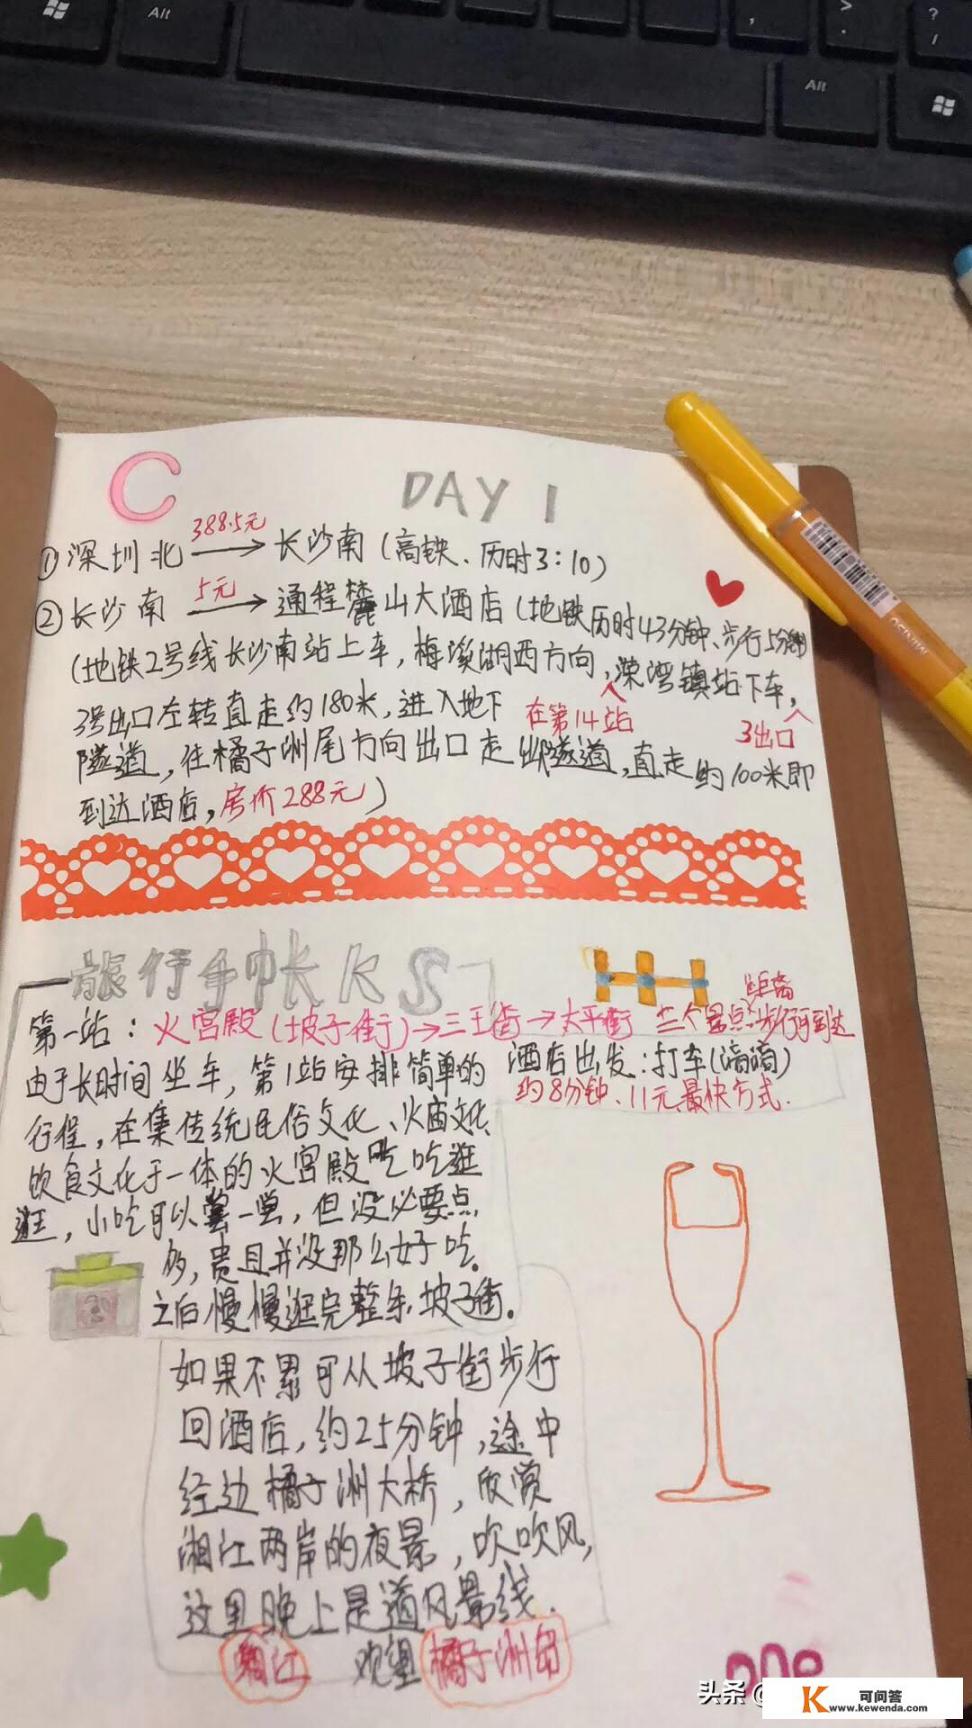 Alt
Alt
C
DAY 1
388.5元
①深圳北→长沙南(高铁、历时3:10)
5元
②长沙南→通程麓山大酒店(地铁历时43分钟、步行5分钟)
(地铁2号线长沙南站上车,梅溪湖西方向,溁湾镇站下车,
在第14站
3号出口左转直走约180米,进入地下
3出口
隧道,往橘子洲尾方向出口走出隧道,直走约100米即
到达酒店,房价288元)
旅行手帐KS
第一站:火宫殿(坡子街)→三王街→太平街 三个景点步行可到达
距离
由于长时间坐车,第1站安排简单的
酒店出发:打车(滴滴)
约8分钟、11元最快方式.
行程,在集传统民俗文化、火庙文化、
饮食文化于一体的火宫殿吃吃逛
逛,小吃可以尝一尝,但没必要点
多,贵且并没那么好吃。
之后慢慢逛完整条坡子街。
如果不累可从坡子街步行
回酒店,约25分钟,途中
经过橘子洲大桥,欣赏
湘江两岸的夜景,吹吹风,
这里晚上是道风景线.
湘江 观望 橘子洲岛
头条@
K 可问答
www.kewenda.com